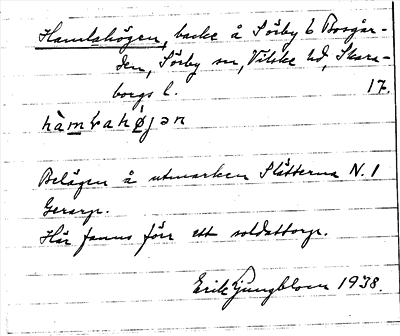 Hamlahögen, backe å Sörby b Bosgår-
den, Sörby sn, Vilske hd, Skara-
borgs l. 17.
hàmlahøjən
Belägen å utmarken Slätterna N. I
Gerarp.
Här fanns förr ett soldattorp.
Erik Ljungblom 1938.